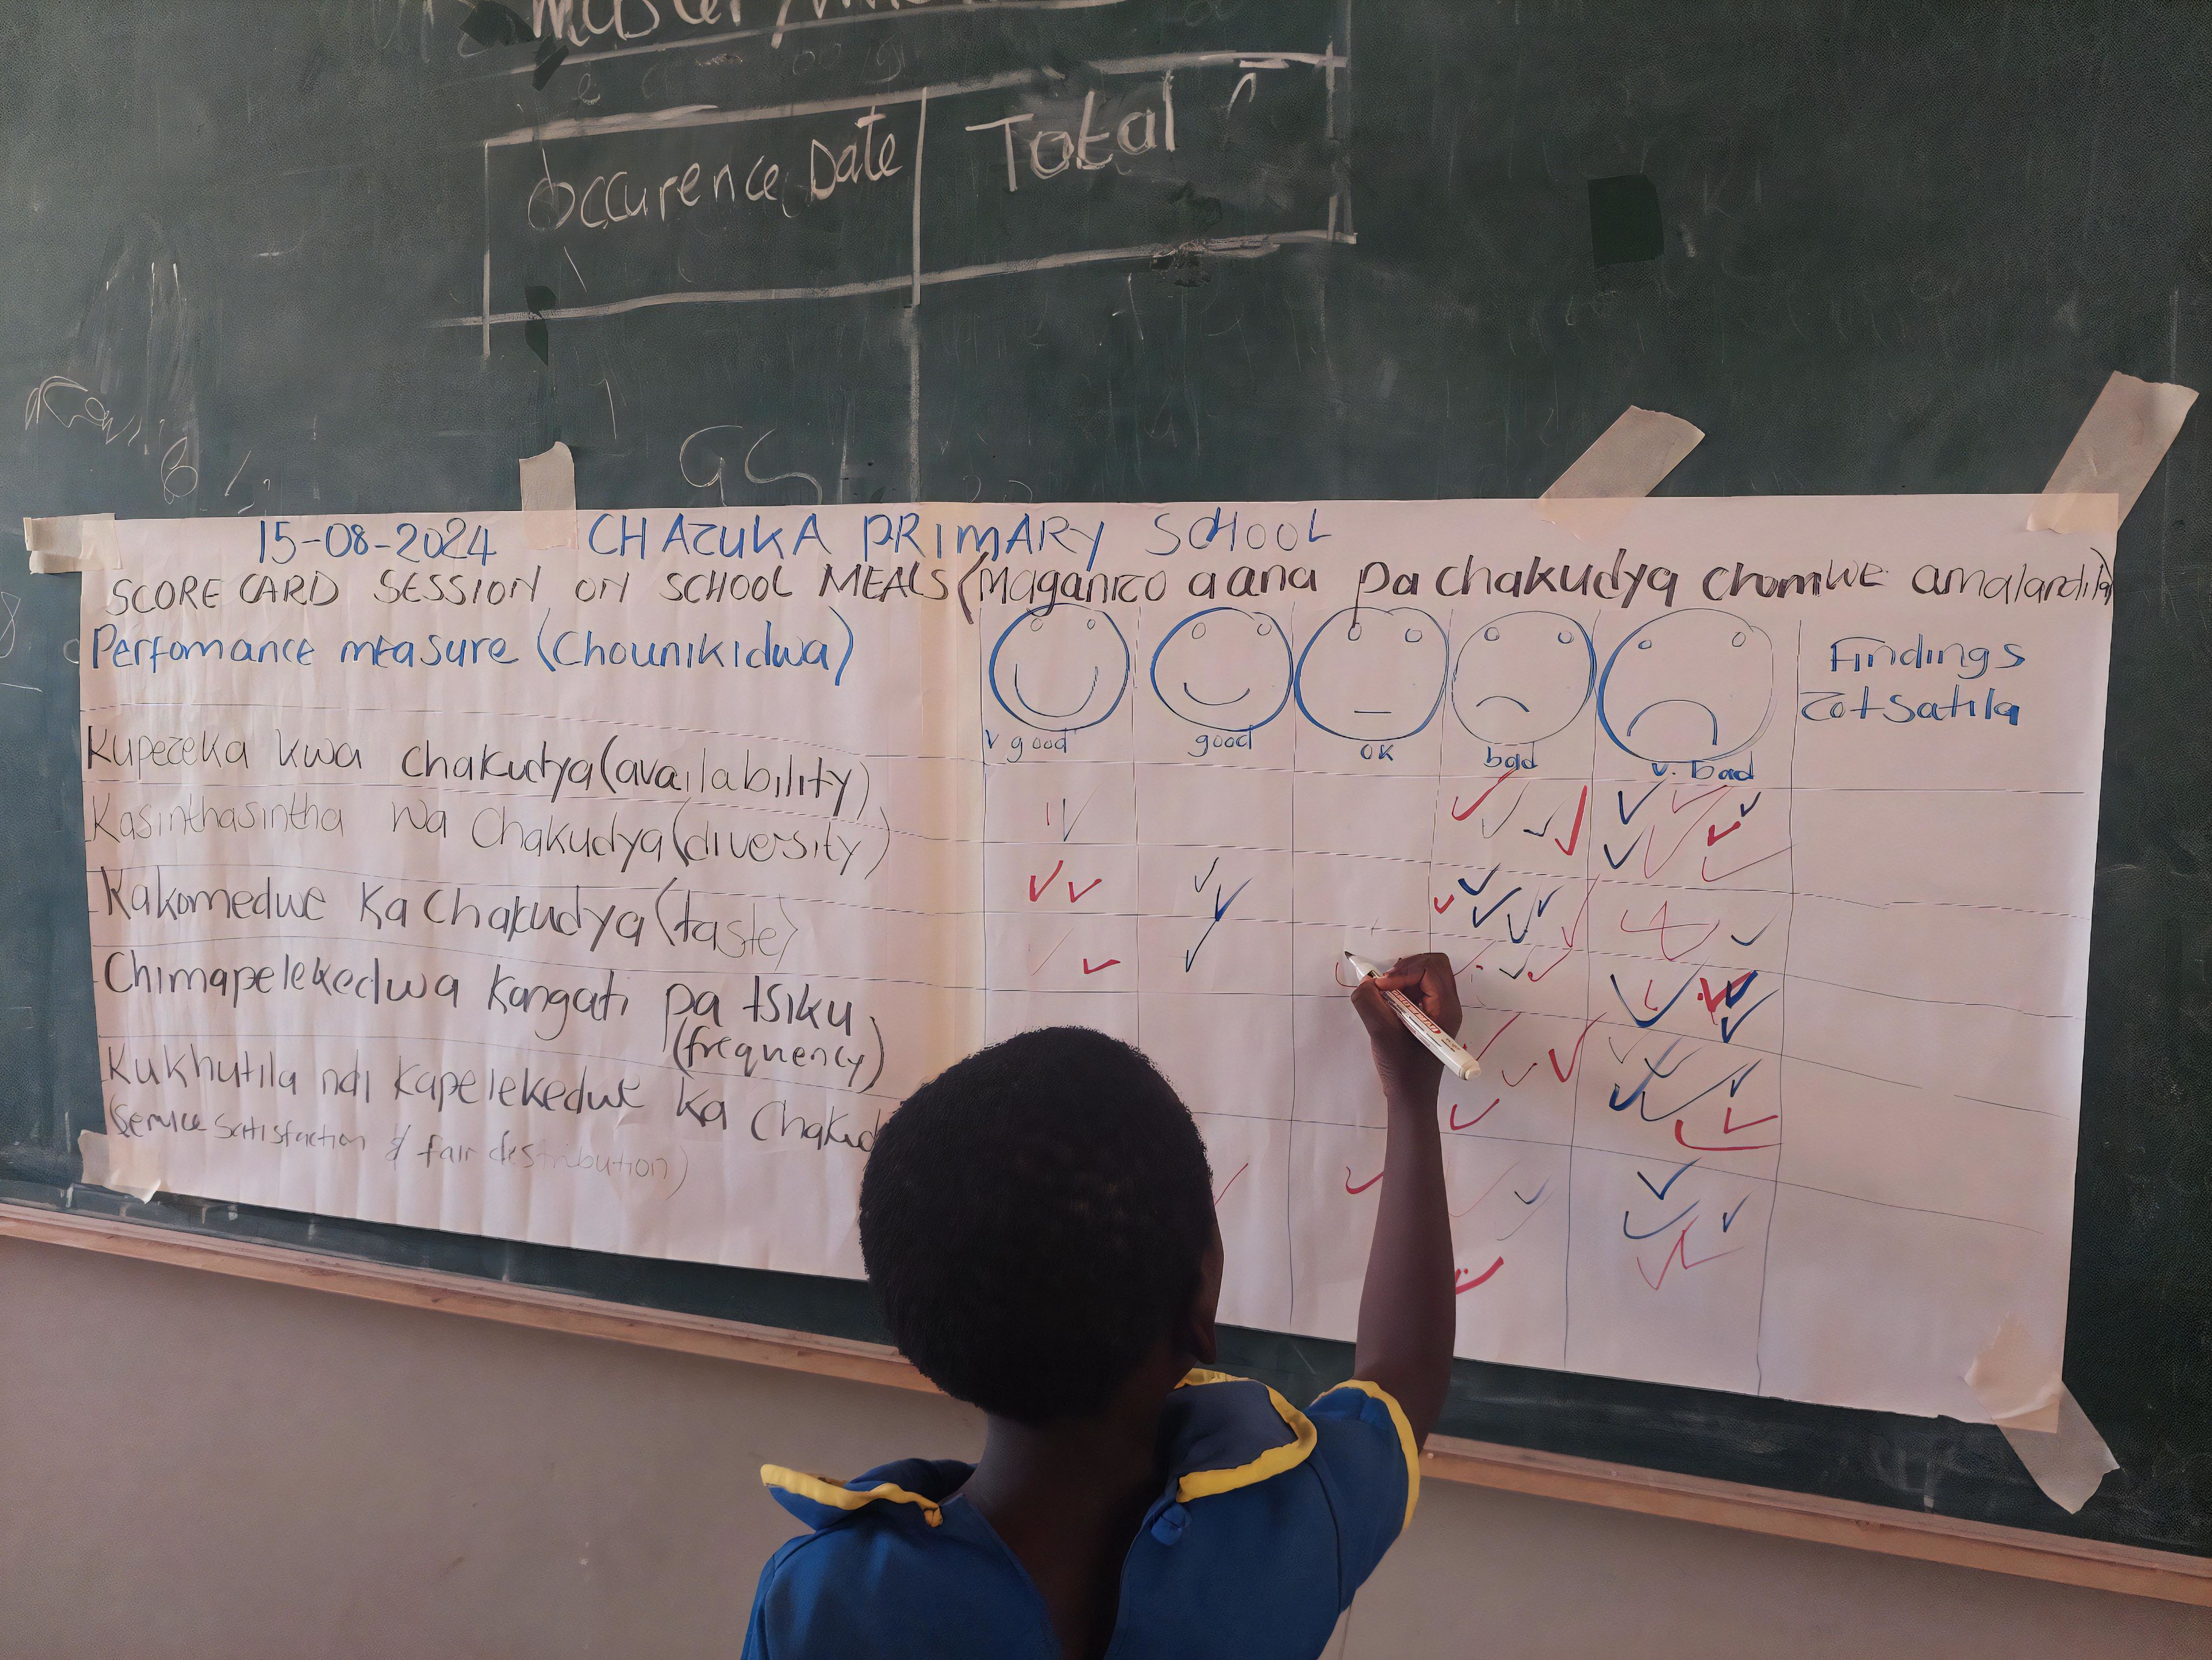 Occurence Date Total
GS
15-08-2024 CHAZUKA PRIMARY SCHOOL
SCORE CARD SESSION ON SCHOOL MEALS (Maganizo a ana pa chakudya chomwe amalandila)
Perfomance measure (Chounikidwa)
Findings
Zotsatila
v good good OK bad v. bad
Kupezeka kwa chakudya (availability)
Kasinthasintha wa Chakudya (diversity)
Kakomedwe ka Chakudya (taste)
Chimapelekedwa kangati pa tsiku
(frequency)
Kukhutila ndi kapelekedwe ka Chakud
(Service satisfaction & fair destribution)